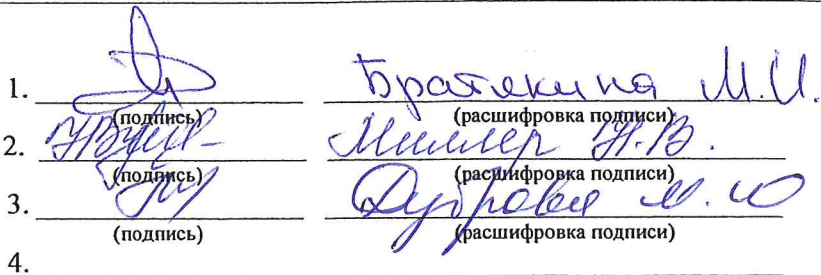 1. Братякина М.И.
(подпись) (расшифровка подписи)
2. Миллер Н.В.
(подпись) (расшифровка подписи)
3. Дубровая М.Ю
(подпись) (расшифровка подписи)
4.